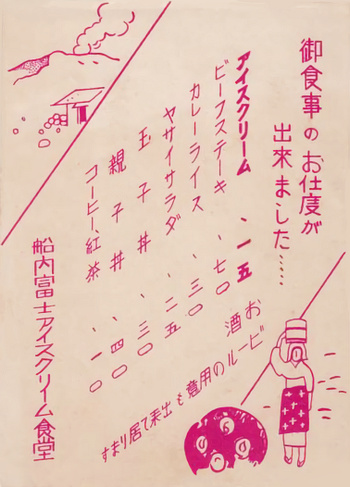 御食事のお仕度が
出来ました……
アイスクリーム、一五
ビーフステーキ、七〇
カレーライス、三〇
ヤサイサラダ、二五
玉子丼、三〇
親子丼、四〇
コーヒー、紅茶、一〇
お酒
ビールの用意も出来て居ります
船内富士アイスクリーム食堂